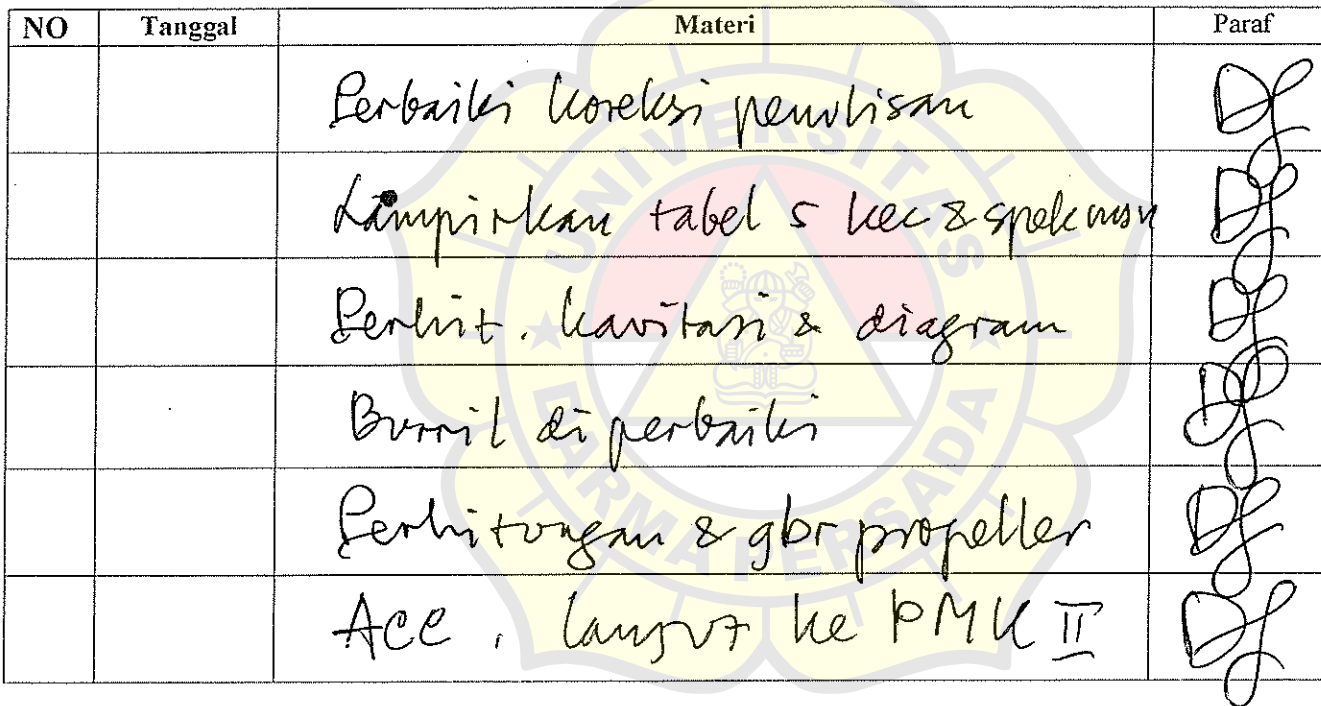 NO Tanggal Materi Paraf
Perbaiki koreksi penulisan
Lampirkan tabel 5 kec & spek msn
Perhit. kavitasi & diagram
Burril diperbaiki
Perhitungan & gbr propeller
Acc, lanjut ke PMK II
UNIVERSITAS
DARMA PERSADA